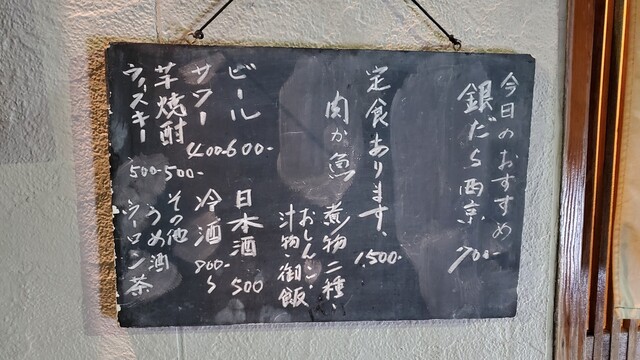 今日のおすすめ
銀だら西京 900-
定食あります、1,500-
肉か魚 煮物二種、
おしんこ、
汁物・御飯
ビール 600-
サワー 400-
芋焼酎 500-
ウィスキー 500-
日本酒 500
冷酒 900-〜
その他
うめ酒
ウーロン茶